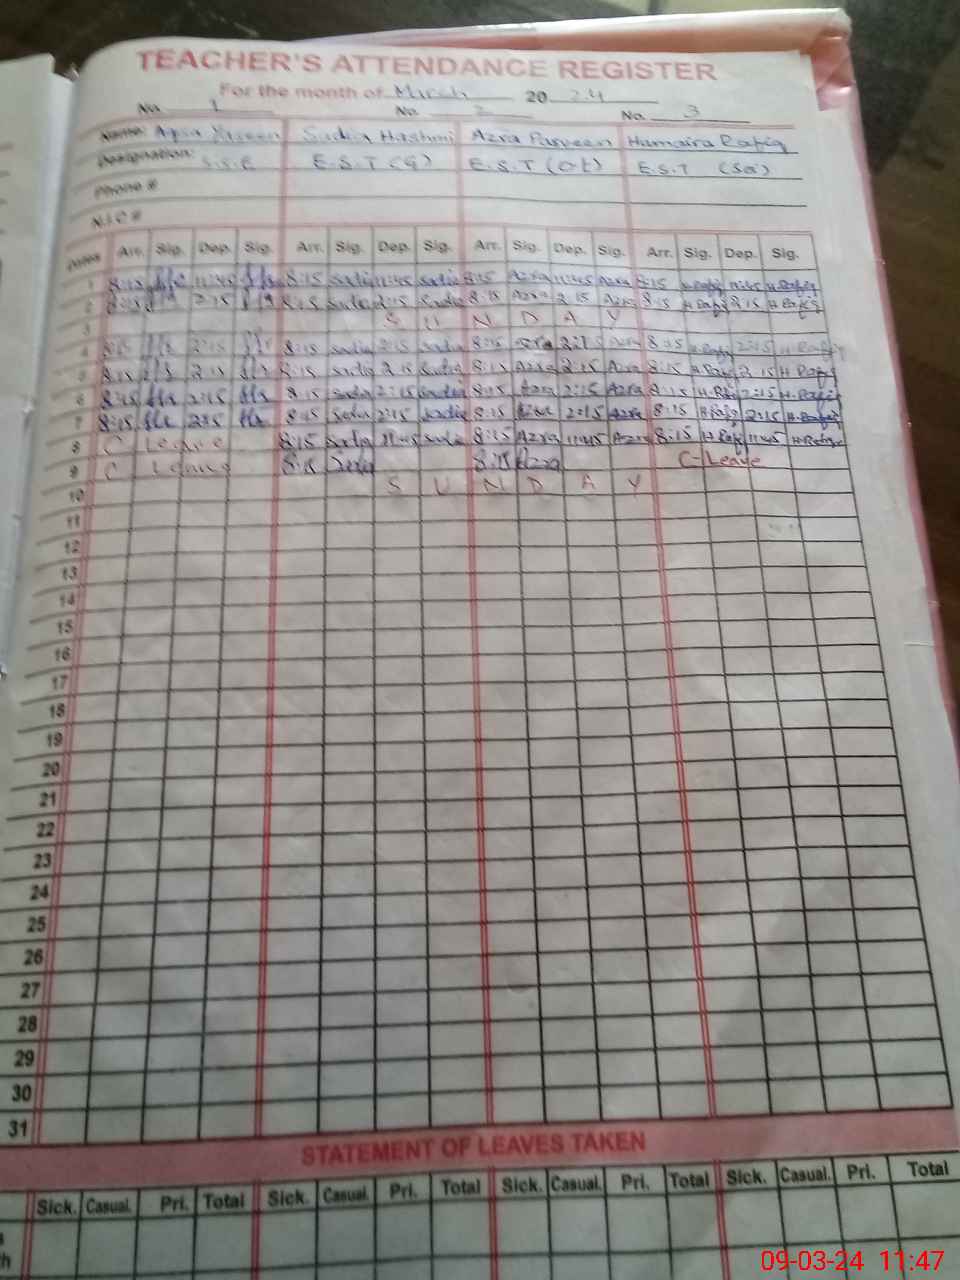 TEACHER'S ATTENDANCE REGISTER
For the month of March 2024
No. 1 No. 2 No. 3
Name: Aqsa Yaseen Sadia Hashmi Azra Parveen Humaira Rafiq
Designation: S.S.E E.S.T (G) E.S.T E.S.T
Phone #
N.I.C #
Dates Arr. Sig. Dep. Sig. Arr. Sig. Dep. Sig. Arr. Sig. Dep. Sig. Arr. Sig. Dep. Sig.
1 8:15 11:45 8:15 sadia 11:45 sadia 8:15 Azra 11:45 Azra 8:15 H.Rafiq 11:45 H.Rafiq
2 8:15 2:15 8:15 sadia 2:15 Sadia 8:15 Azra 2:15 Azra 8:15 H.Rafiq 2:15 H.Rafiq
3 S U N D A Y
4 8:15 2:15 8:15 sadia 2:15 sadia 8:15 Azra 2:15 Azra 8:15 H.Rafiq 2:15 H.Rafiq
5 8:15 2:15 8:15 sadia 2:15 Sadia 8:15 Azra 2:15 Azra 8:15 H.Rafiq 2:15 H.Rafiq
6 8:15 2:15 8:15 Sadia 2:15 Sadia 8:15 Azra 2:15 Azra 8:15 H.Rafiq 2:15 H.Rafiq
7 8:15 2:15 8:15 Sadia 2:15 sadia 8:15 Azra 2:15 Azra 8:15 H.Rafiq 2:15 H.Rafiq
8 C Leave 8:15 Sadia 11:45 sadia 8:15 Azra 11:45 Azra 8:15 H.Rafiq 11:45 H.Rafiq
9 C Leave 8:15 Sadia 8:15 Azra C-Leave
10 S U N D A Y
11
12
13
14
15
16
17
18
19
20
21
22
23
24
25
26
27
28
29
30
31
STATEMENT OF LEAVES TAKEN
Sick. Casual. Pri. Total Sick. Casual. Pri. Total Sick. Casual. Pri. Total Sick. Casual. Pri. Total
09-03-24 11:47